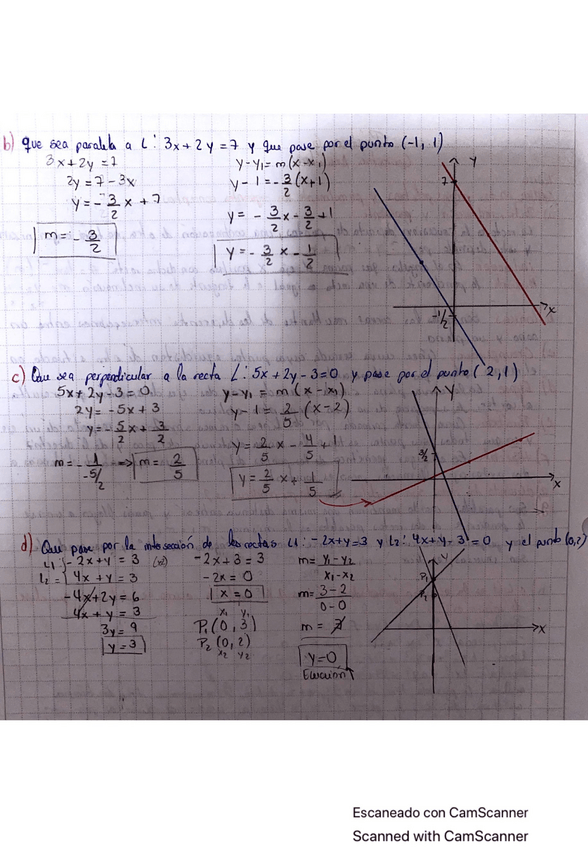 b) Que sea paralela a L: 3x + 2y = 7 y que pase por el punto (-1, 1)
3x + 2y = 7
2y = 7 - 3x
y = -3/2 x + 7
m = -3/2
y - y1 = m(x - x1)
y - 1 = -3/2 (x+1)
y = -3/2 x - 3/2 + 1
y = -3/2 x - 1/2
y
7
-1/2
x
c) Que sea perpendicular a la recta L: 5x + 2y - 3 = 0 y pase por el punto (2,1)
5x + 2y - 3 = 0
2y = -5x + 3
y = -5/2 x + 3/2
m = -1/-5/2 => m = 2/5
y - y1 = m (x - x1)
y - 1 = 2/5 (x - 2)
y = 2/5 x - 4/5 + 1
y = 2/5 x + 1/5
y
3/2
x
d) Que pase por la intersección de las rectas L1: -2x+y=3 y L2: 4x+y-3=0 y el punto (0,2)
L1: -2x + y = 3 (x2)
L2: 4x + y = 3
-4x + 2y = 6
4x + y = 3
3y = 9
y = 3
-2x + 3 = 3
-2x = 0
x = 0
x1 y1
P1 (0, 3)
P2 (0, 2)
x2 y2
m = y1 - y2 / x1 - x2
m = 3 - 2 / 0 - 0
m =
y = 0
Ecuación
y
P1
P2
x
Escaneado con CamScanner
Scanned with CamScanner